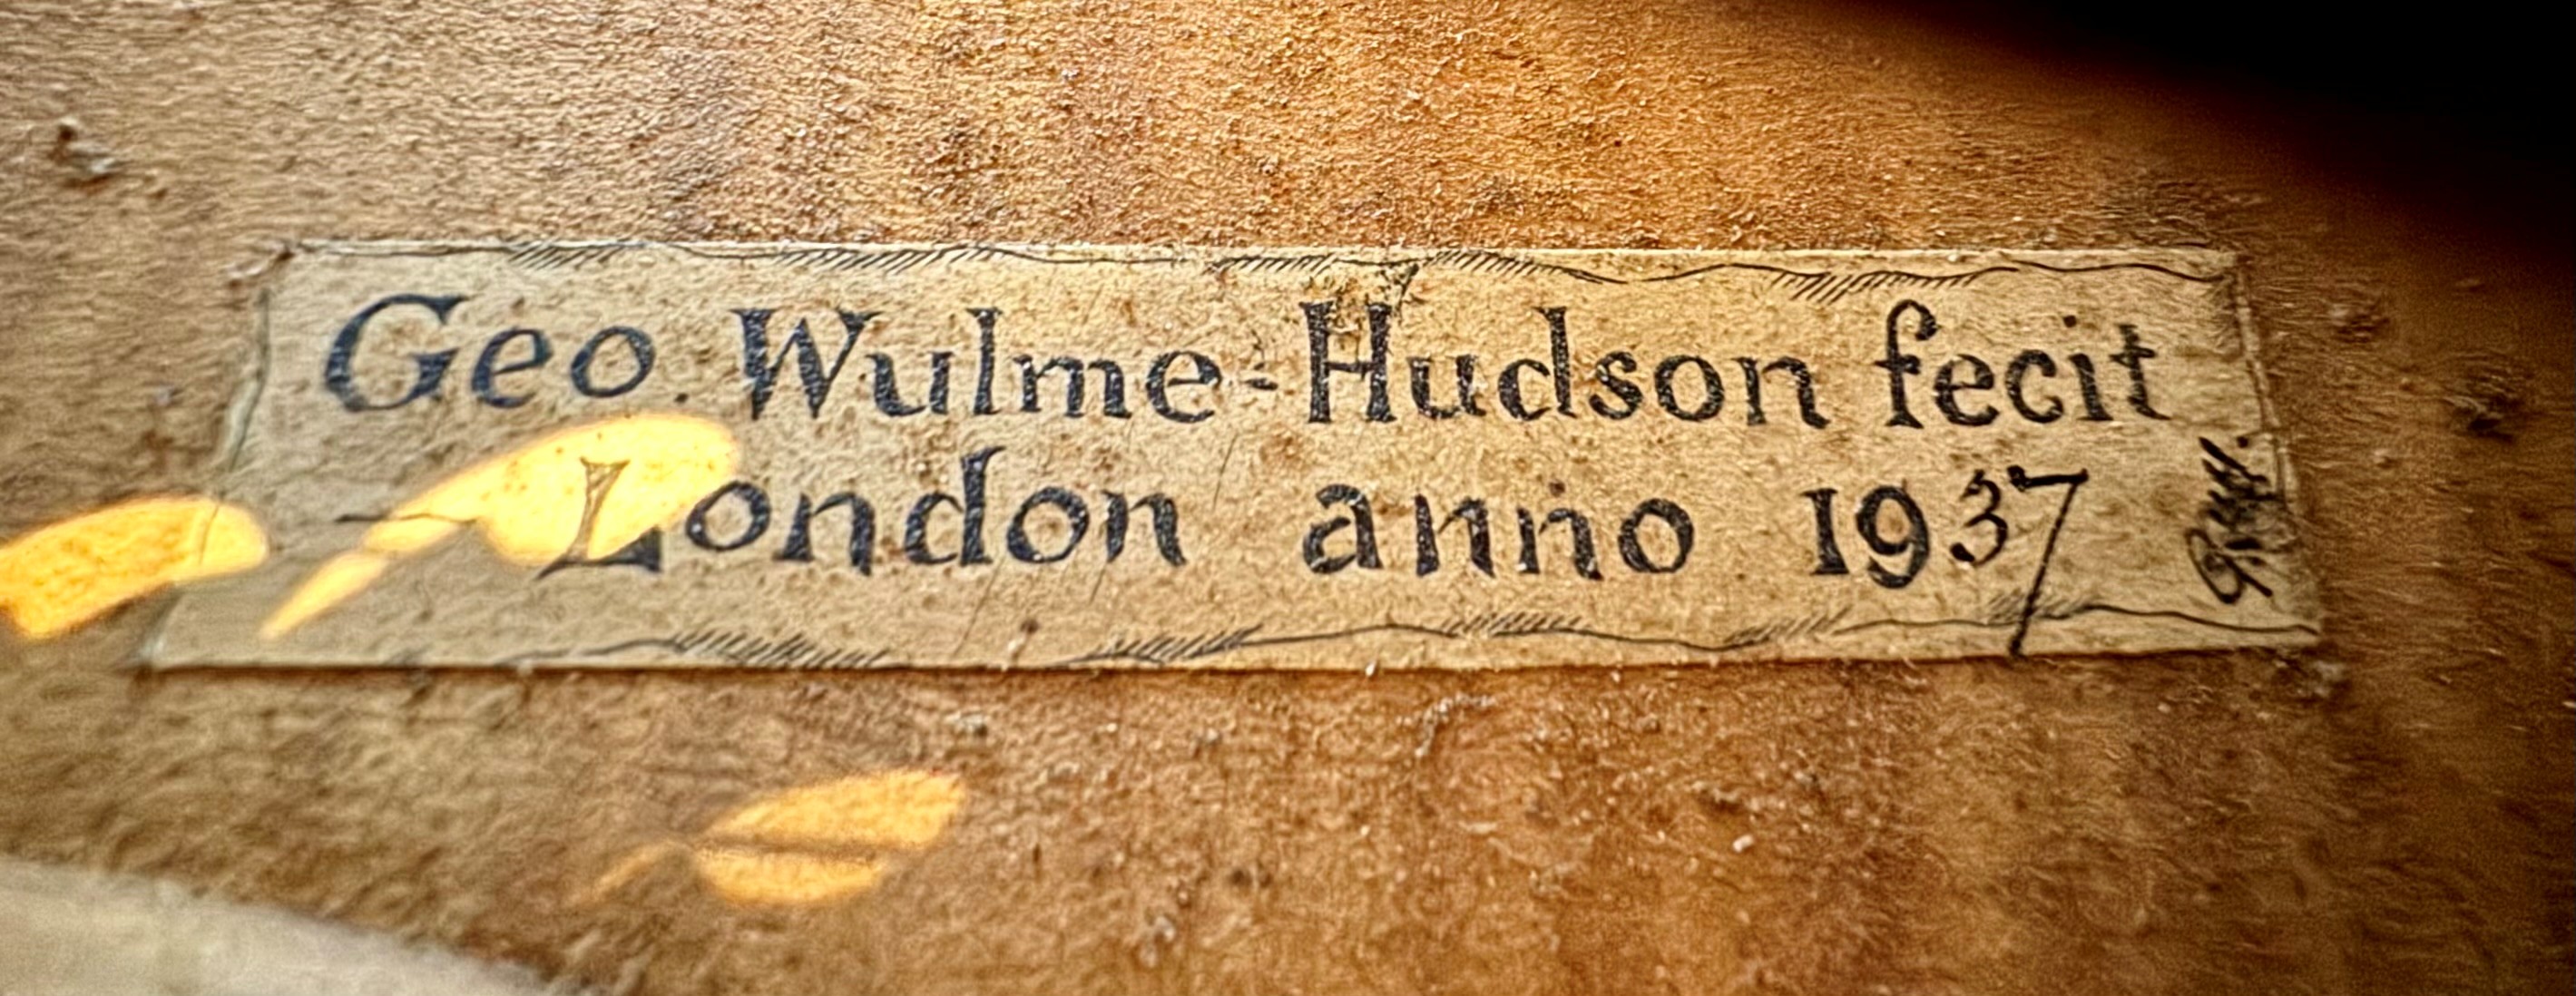 Geo. Wulme-Hudson fecit
London anno 1937